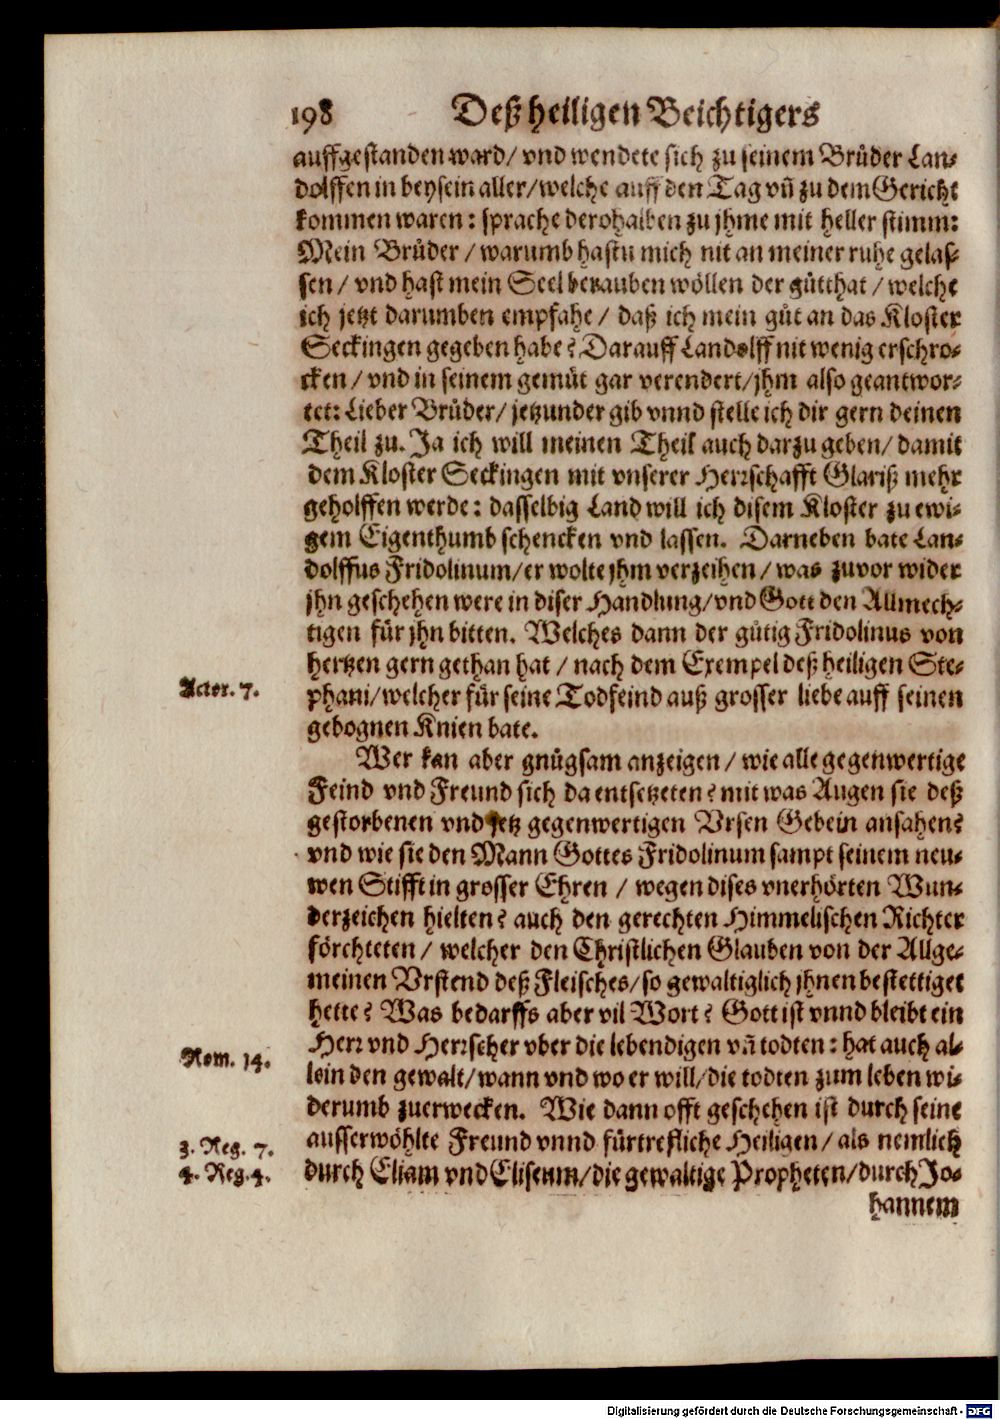 198 Deß heiligen Beichtigers
auffgestanden ward/ vnd wendete sich zu seinem Brůder Lan-
dolffen in beysein aller/ welche auff den Tag vñ zu dem Gericht
kommen waren: sprache derohalben zu jhme mit heller stimm:
Mein Brůder / warumb hastu mich nit an meiner ruhe gelas-
sen / vnd hast mein Seel berauben wöllen der gůtthat / welche
ich jetzt darumben empfahe / daß ich mein gůt an das Kloster
Seckingen gegeben habe? Darauff Landolff nit wenig erschro-
cken / vnd in seinem gemůt gar verendert/ jhm also geantwor-
tet: Lieber Brůder/ jetzunder gib vnnd stelle ich dir gern deinen
Theil zu. Ja ich will meinen Theil auch darzu geben/ damit
dem Kloster Seckingen mit vnserer Herrschafft Glariß mehr
geholffen werde: dasselbig Land will ich disem Kloster zu ewi-
gem Eigenthumb schencken vnd lassen. Darneben bate Lan-
dolffus Fridolinum/ er wolte jhm verzeihen / was zuvor wider
jhn geschehen were in diser Handlung/ vnd Gott den Allmech-
tigen für jhn bitten. Welches dann der gůtig Fridolinus von
hertzen gern gethan hat / nach dem Exempel deß heiligen Ste-
Actor. 7.
phani/ welcher für seine Todfeind auß grosser liebe auff seinen
gebognen Knien bate.
Wer kan aber gnůgsam anzeigen / wie alle gegenwertige
Feind vnd Freund sich da entsetzeten? mit was Augen sie deß
gestorbenen vnd jetz gegenwertigen Vrsen Gebein ansahen?
vnd wie sie den Mann Gottes Fridolinum sampt seinem neu-
wen Stifft in grosser Ehren / wegen dises vnerhörten Wun-
derzeichen hielten? auch den gerechten Himmelischen Richter
förchteten / welcher den Christlichen Glauben von der Allge-
meinen Vrstend deß Fleisches/ so gewaltiglich jhnen bestettiget
hette? Was bedarffs aber vil Wort? Gott ist vnnd bleibt ein
Rom. 14.
Herr vnd Herrscher vber die lebendigen vñ todten: hat auch al-
lein den gewalt/ wann vnd wo er will/ die todten zum leben wi-
derumb zuerwecken. Wie dann offt geschehen ist durch seine
3. Reg. 7.
ausserwöhlte Freund vnnd fürtrefliche Heiligen / als nemlich
4. Reg. 4.
durch Eliam vnd Eliseum/ die gewaltige Propheten/ durch Jo-
hannem
Digitalisierung gefördert durch die Deutsche Forschungsgemeinschaft - DFG